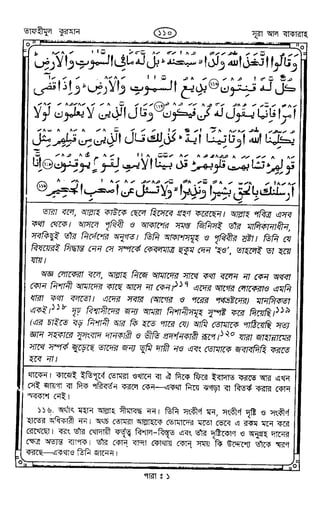 তাফহীমুল কুরআন
১১০
সূরা আল বাকারাহ
وَقَالُوا اتَّخَذَ اللهُ وَلَدًا سُبْحٰنَهٗ بَلْ لَّهٗ مَا فِى السَّمٰوٰتِ وَالْاَرْضِ
كُلٌّ لَّهٗ قٰنِتُوْنَ ﴿١١٦﴾ بَدِيْعُ السَّمٰوٰتِ وَالْاَرْضِ وَاِذَا قَضٰى
اَمْرًا فَاِنَّمَا يَقُوْلُ لَهٗ كُنْ فَيَكُوْنُ ﴿١١٧﴾ وَقَالَ الَّذِيْنَ لَا يَعْلَمُوْنَ لَوْلَا
يُكَلِّمُنَا اللهُ اَوْ تَاْتِيْنَا اٰيَةٌ كَذٰلِكَ قَالَ الَّذِيْنَ مِنْ قَبْلِهِمْ مِّثْلَ
قَوْلِهِمْ تَشَابَهَتْ قُلُوْبُهُمْ قَدْ بَيَّنَّا الْاٰيٰتِ لِقَوْمٍ يُّوْقِنُوْنَ ﴿١١٨﴾ اِنَّا
اَرْسَلْنٰكَ بِالْحَقِّ بَشِيْرًا وَّنَذِيْرًا وَّلَا تُسْئَلُ عَنْ اَصْحٰبِ الْجَحِيْمِ ﴿١١٩﴾
তারা বলে, আল্লাহ কাউকে ছেলে হিসেবে গ্রহণ করেছেন। আল্লাহ পবিত্র এসব
কথা থেকে। আসলে পৃথিবী ও আকাশের সমস্ত জিনিসই তাঁর মালিকানাধীন,
সবকিছুই তাঁর নির্দেশের অনুগত। তিনি আকাশসমূহ ও পৃথিবীর স্রষ্টা। তিনি যে
বিষয়েরই সিদ্ধান্ত নেন সে সম্পর্কে কেবলমাত্র হুকুম দেন 'হও', তাহলেই তা হয়ে
যায়।
অজ্ঞ লোকেরা বলে, আল্লাহ নিজে আমাদের সাথে কথা বলেন না কেন অথবা
কোন নিশানী আমাদের কাছে আসে না কেন?১১৭ এদের আগের লোকেরাও এমনি
ধারা কথা বলতো। এদের সবার (আগের ও পরের পথভ্রষ্টদের) মানসিকতা
একই।১১৮ দৃঢ় বিশ্বাসীদের জন্য আমরা নিশানীসমূহ সুস্পষ্ট করে দিয়েছি।১১৯
(এর চাইতে বড় নিশানী আর কি হতে পারে যে) আমি তোমাকে পাঠিয়েছি সত্য
জ্ঞান সহকারে সুসংবাদ দানকারী ও ভীতি প্রদর্শনকারী রূপে।১২০ যারা জাহান্নামের
সাথে সম্পর্ক জুড়েছে তাদের জন্য তুমি দায়ী নও এবং তোমাকে জবাবদিহি করতে
হবে না।
থাকেন। কাজেই ইতিপূর্বে তোমরা ওখানে বা ঐ দিকে ফিরে ইবাদাত করতে আর এখন
সেই জায়গা বা দিক পরিবর্তন করলে কেন—একথা নিয়ে ঝগড়া বা বিতর্ক করার কোন
অবকাশ নেই।
১১৬. অর্থাৎ মহান আল্লাহ সীমাবদ্ধ নন। তিনি সংকীর্ণ মন, সংকীর্ণ দৃষ্টি ও সংকীর্ণ
হাতের অধিকারী নন। অথচ তোমরা আল্লাহকে তোমাদের মতো ভেবে এ রকম মনে করে
রেখেছো। বরং তাঁর খোদায়ী কর্তৃত্ব বিশাল-বিস্তৃত এবং তাঁর দৃষ্টিকোণ ও অনুগ্রহ দানের
ক্ষেত্র অত্যন্ত ব্যাপক। তাঁর কোন্ বান্দা কোথায় কোন্ সময় কি উদ্দেশ্যে তাঁকে স্মরণ
করছে—একথাও তিনি জানেন।
পারা ঃ ১